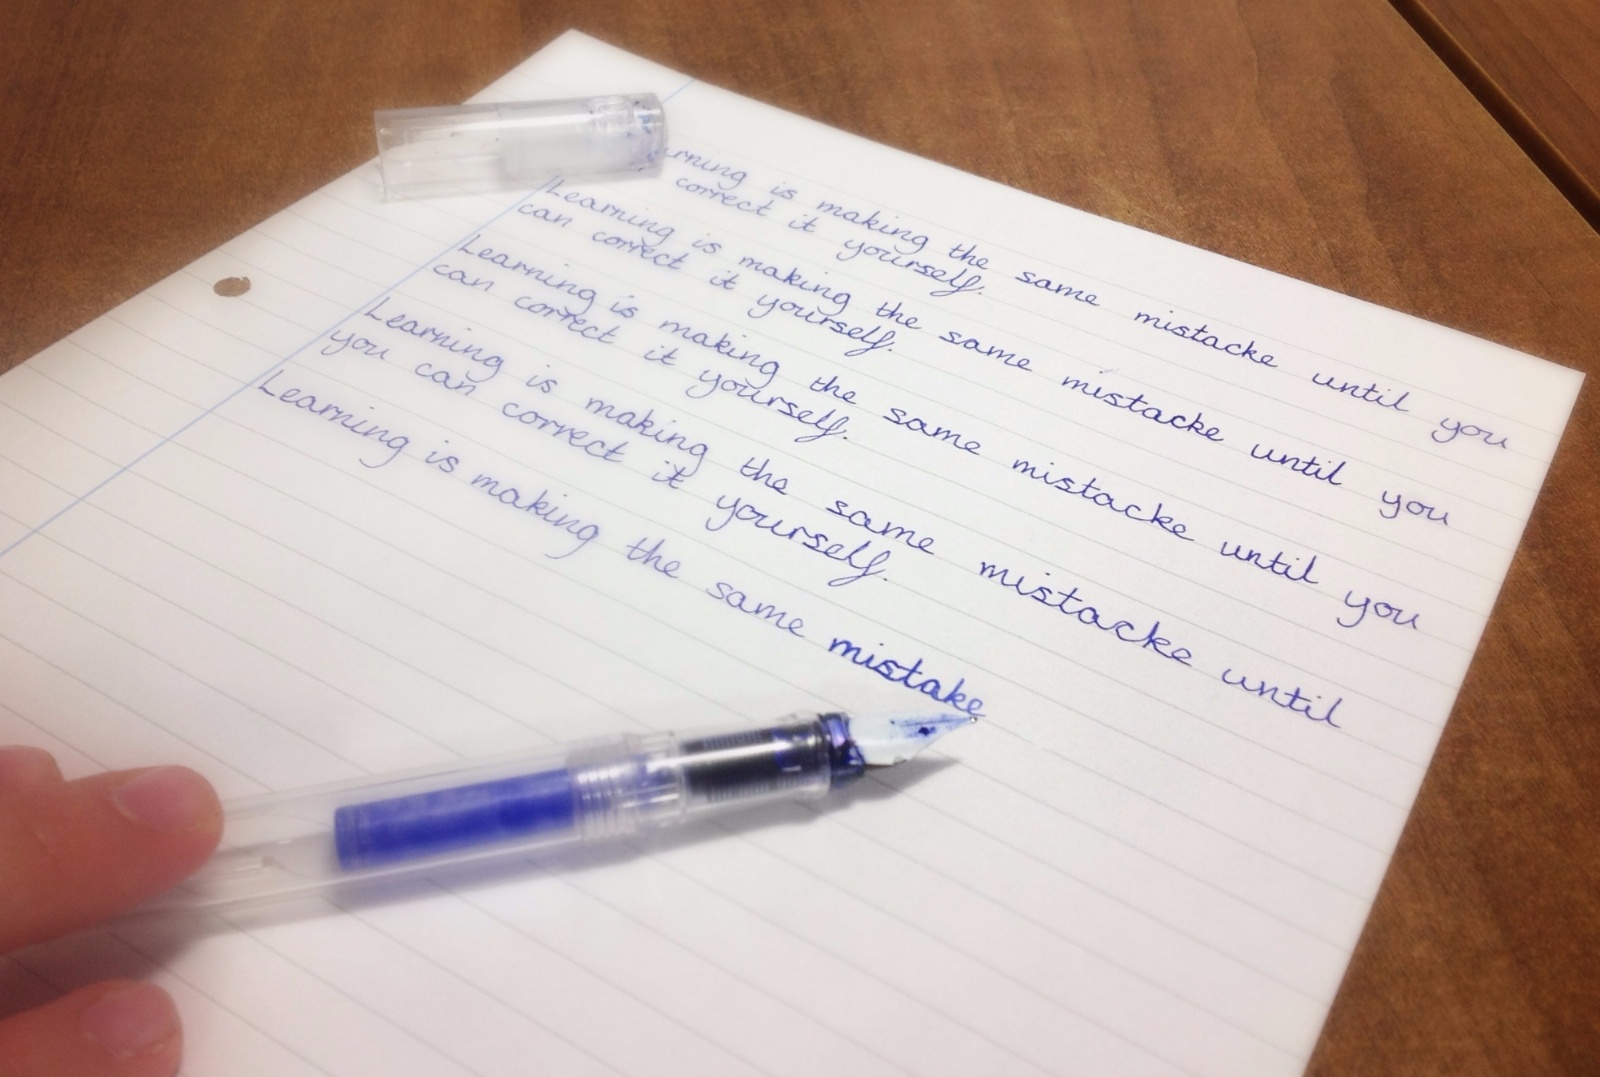 rning is making the same mistacke until you
correct it yourself.
Learning is making the same mistacke until you
can correct it yourself.
Learning is making the same mistacke until you
can correct it yourself.
Learning is making the same mistacke until
you can correct it yourself.
Learning is making the same mistake